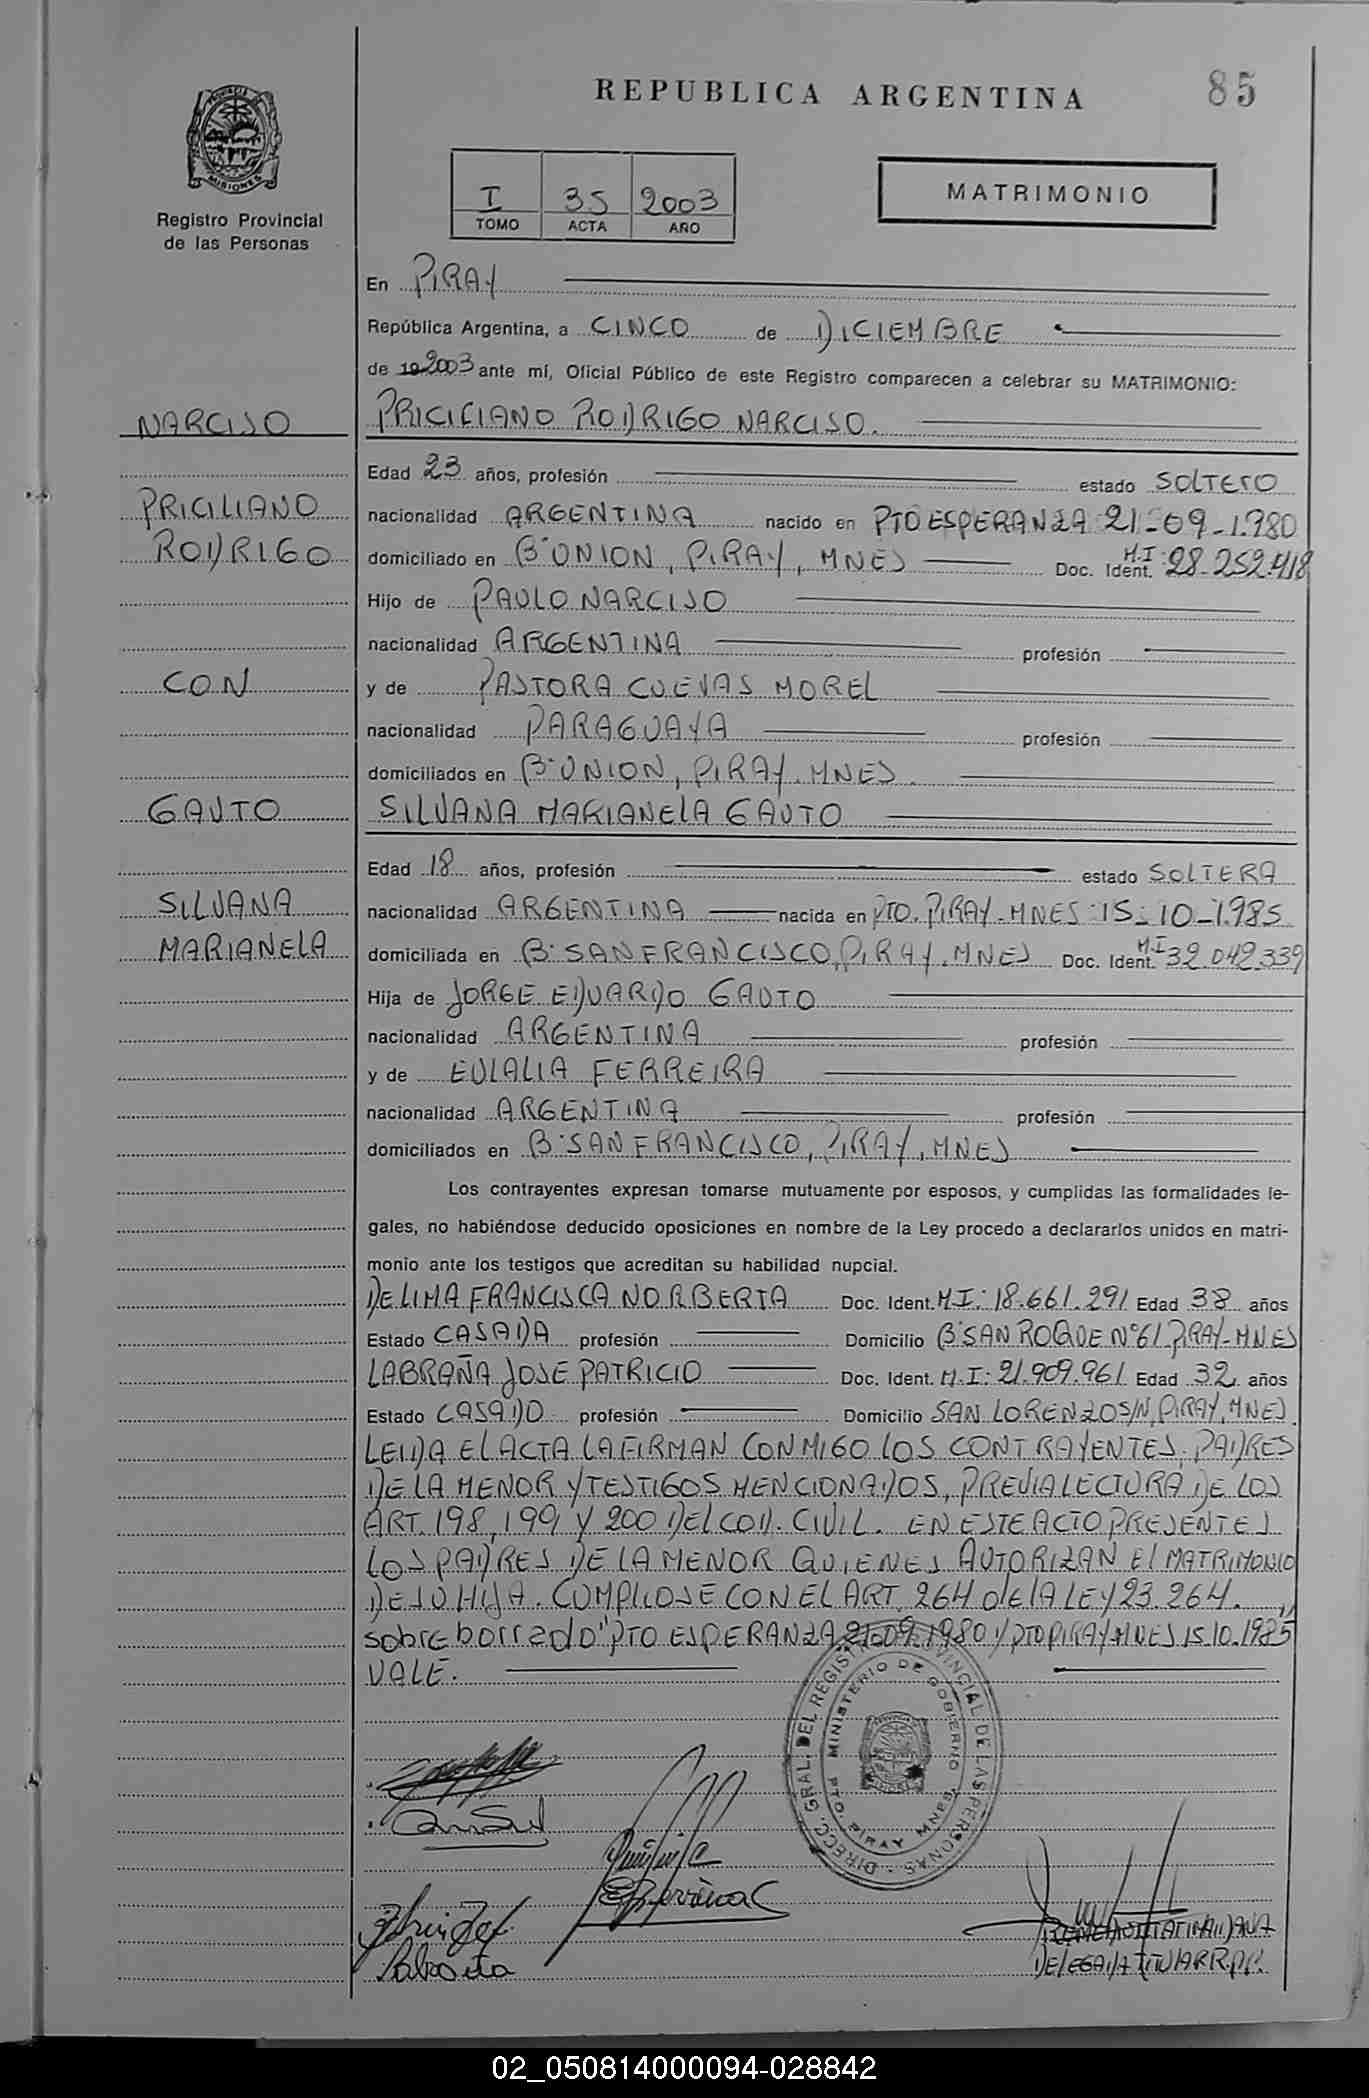 REPUBLICA ARGENTINA
85
MISIONES
Registro Provincial
de las Personas
I 35 2003
TOMO ACTA AÑO
MATRIMONIO
En PIRAY
República Argentina, a CINCO de DICIEMBRE
de 19 2003 ante mí, Oficial Público de este Registro comparecen a celebrar su MATRIMONIO:
NARCISO
PRICILIANO RODRIGO NARCISO.
Edad 23 años, profesión estado SOLTERO
PRICILIANO
nacionalidad ARGENTINA nacido en PTO ESPERANZA 21-09-1980
RODRIGO
domiciliado en B° UNION, PIRAY, MNES Doc. Ident. M.I: 28.252.418
Hijo de PAULO NARCISO
nacionalidad ARGENTINA profesión
CON
y de PASTORA CUEVAS MOREL
nacionalidad PARAGUAYA profesión
domiciliados en B° UNION, PIRAY. MNES.
GAUTO
SILVANA MARIANELA GAUTO
Edad 18 años, profesión estado SOLTERA
SILVANA
nacionalidad ARGENTINA nacida en PTO. PIRAY-MNES 15-10-1985
MARIANELA
domiciliada en B° SAN FRANCISCO, PIRAY. MNES Doc. Ident. M.I 32.042.339
Hija de JORGE EDUARDO GAUTO
nacionalidad ARGENTINA profesión
y de EULALIA FERREIRA
nacionalidad ARGENTINA profesión
domiciliados en B° SAN FRANCISCO, PIRAY, MNES
Los contrayentes expresan tomarse mutuamente por esposos, y cumplidas las formalidades le-
gales, no habiéndose deducido oposiciones en nombre de la Ley procedo a declararlos unidos en matri-
monio ante los testigos que acreditan su habilidad nupcial.
DE LIMA FRANCISCA NORBERTA Doc. Ident. M.I: 18.661.291 Edad 38 años
Estado CASADA profesión Domicilio B° SAN ROQUE N°61 PIRAY-MNES
LABRAÑA JOSE PATRICIO Doc. Ident. M.I: 21.909.961 Edad 32 años
Estado CASADO profesión Domicilio SAN LORENZO S/N, PIRAY, MNES.
LEIDA EL ACTA LA FIRMAN CONMIGO LOS CONTRAYENTES, PADRES
DE LA MENOR Y TESTIGOS MENCIONADOS, PREVIA LECTURA DE LOS
ART. 198, 199 Y 200 DEL COD. CIVIL. EN ESTE ACTO PRESENTES
LOS PADRES DE LA MENOR QUIENES AUTORIZAN El MATRIMONIO
DE SU HIJA. CUMPLIOSE CON EL ART. 264 de lA LEY 23.264.
sobre borrado "PTO ESPERANZA 21-09-1980 Y PTO PIRAY MNES 15.10.1985"
VALE.
DIRECC. GRAL. DEL REGISTRO PROVINCIAL DE LAS PERSONAS
MINISTERIO DE GOBIERNO
PTO. PIRAY MNES.
DELEGADA TITULAR R.P.P.
02_050814000094-028842